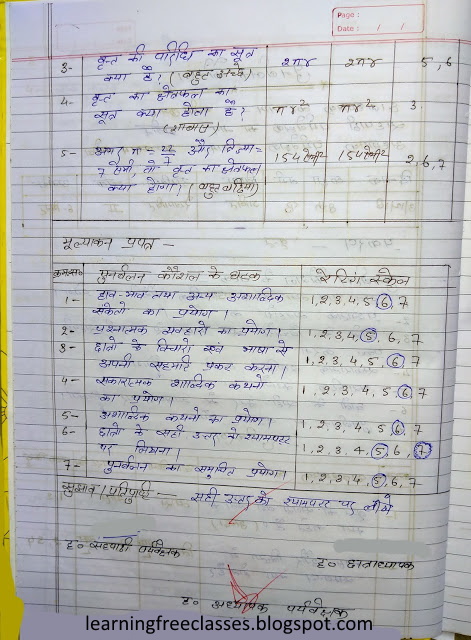 Page :
Date : / /
3- वृत्त की परिधि का सूत्र 2πr 2πr 5,6
क्या है? (बहुत अच्छे)
4- वृत्त का क्षेत्रफल का
सूत्र क्या होता है? πr² πr² 3
(शाबाश)
5- अगर π = 22/7 और त्रिज्या = 154 सेमी² 154 सेमी² 2,6,7
7 सेमी, तो वृत्त का क्षेत्रफल
क्या होगा? (बहुत बढ़िया)
मूल्यांकन प्रपत्र —
क्र०सं० पुनर्बलन कौशल के घटक रेटिंग स्केल
1- हाव-भाव तथा अन्य अशाब्दिक 1,2,3,4,5,6,7
संकेतो का प्रयोग ।
2- प्रशंसात्मक व्यवहारो का प्रयोग । 1,2,3,4,5,6,7
3- छात्रो के विचारो एवं भाषा से
अपनी सहमति प्रकट करना । 1,2,3,4,5,6,7
4- सकारात्मक शाब्दिक कथनो 1,2,3,4,5,6,7
का प्रयोग ।
5- अशाब्दिक कथनो का प्रयोग । 1,2,3,4,5,6,7
6- छात्रो के सही उत्तर को श्यामपट्ट
पर लिखना । 1,2,3,4,5,6,7
7- पुनर्बलन का समुचित प्रयोग । 1,2,3,4,5,6,7
सुझाव / प्रतिपुष्टि — सही उत्तर को श्यामपट्ट पर लिखे
ह० सहपाठी पर्यवेक्षक
ह० छात्राध्यापक
ह० अध्यापक पर्यवेक्षक
learningfreeclasses.blogspot.com